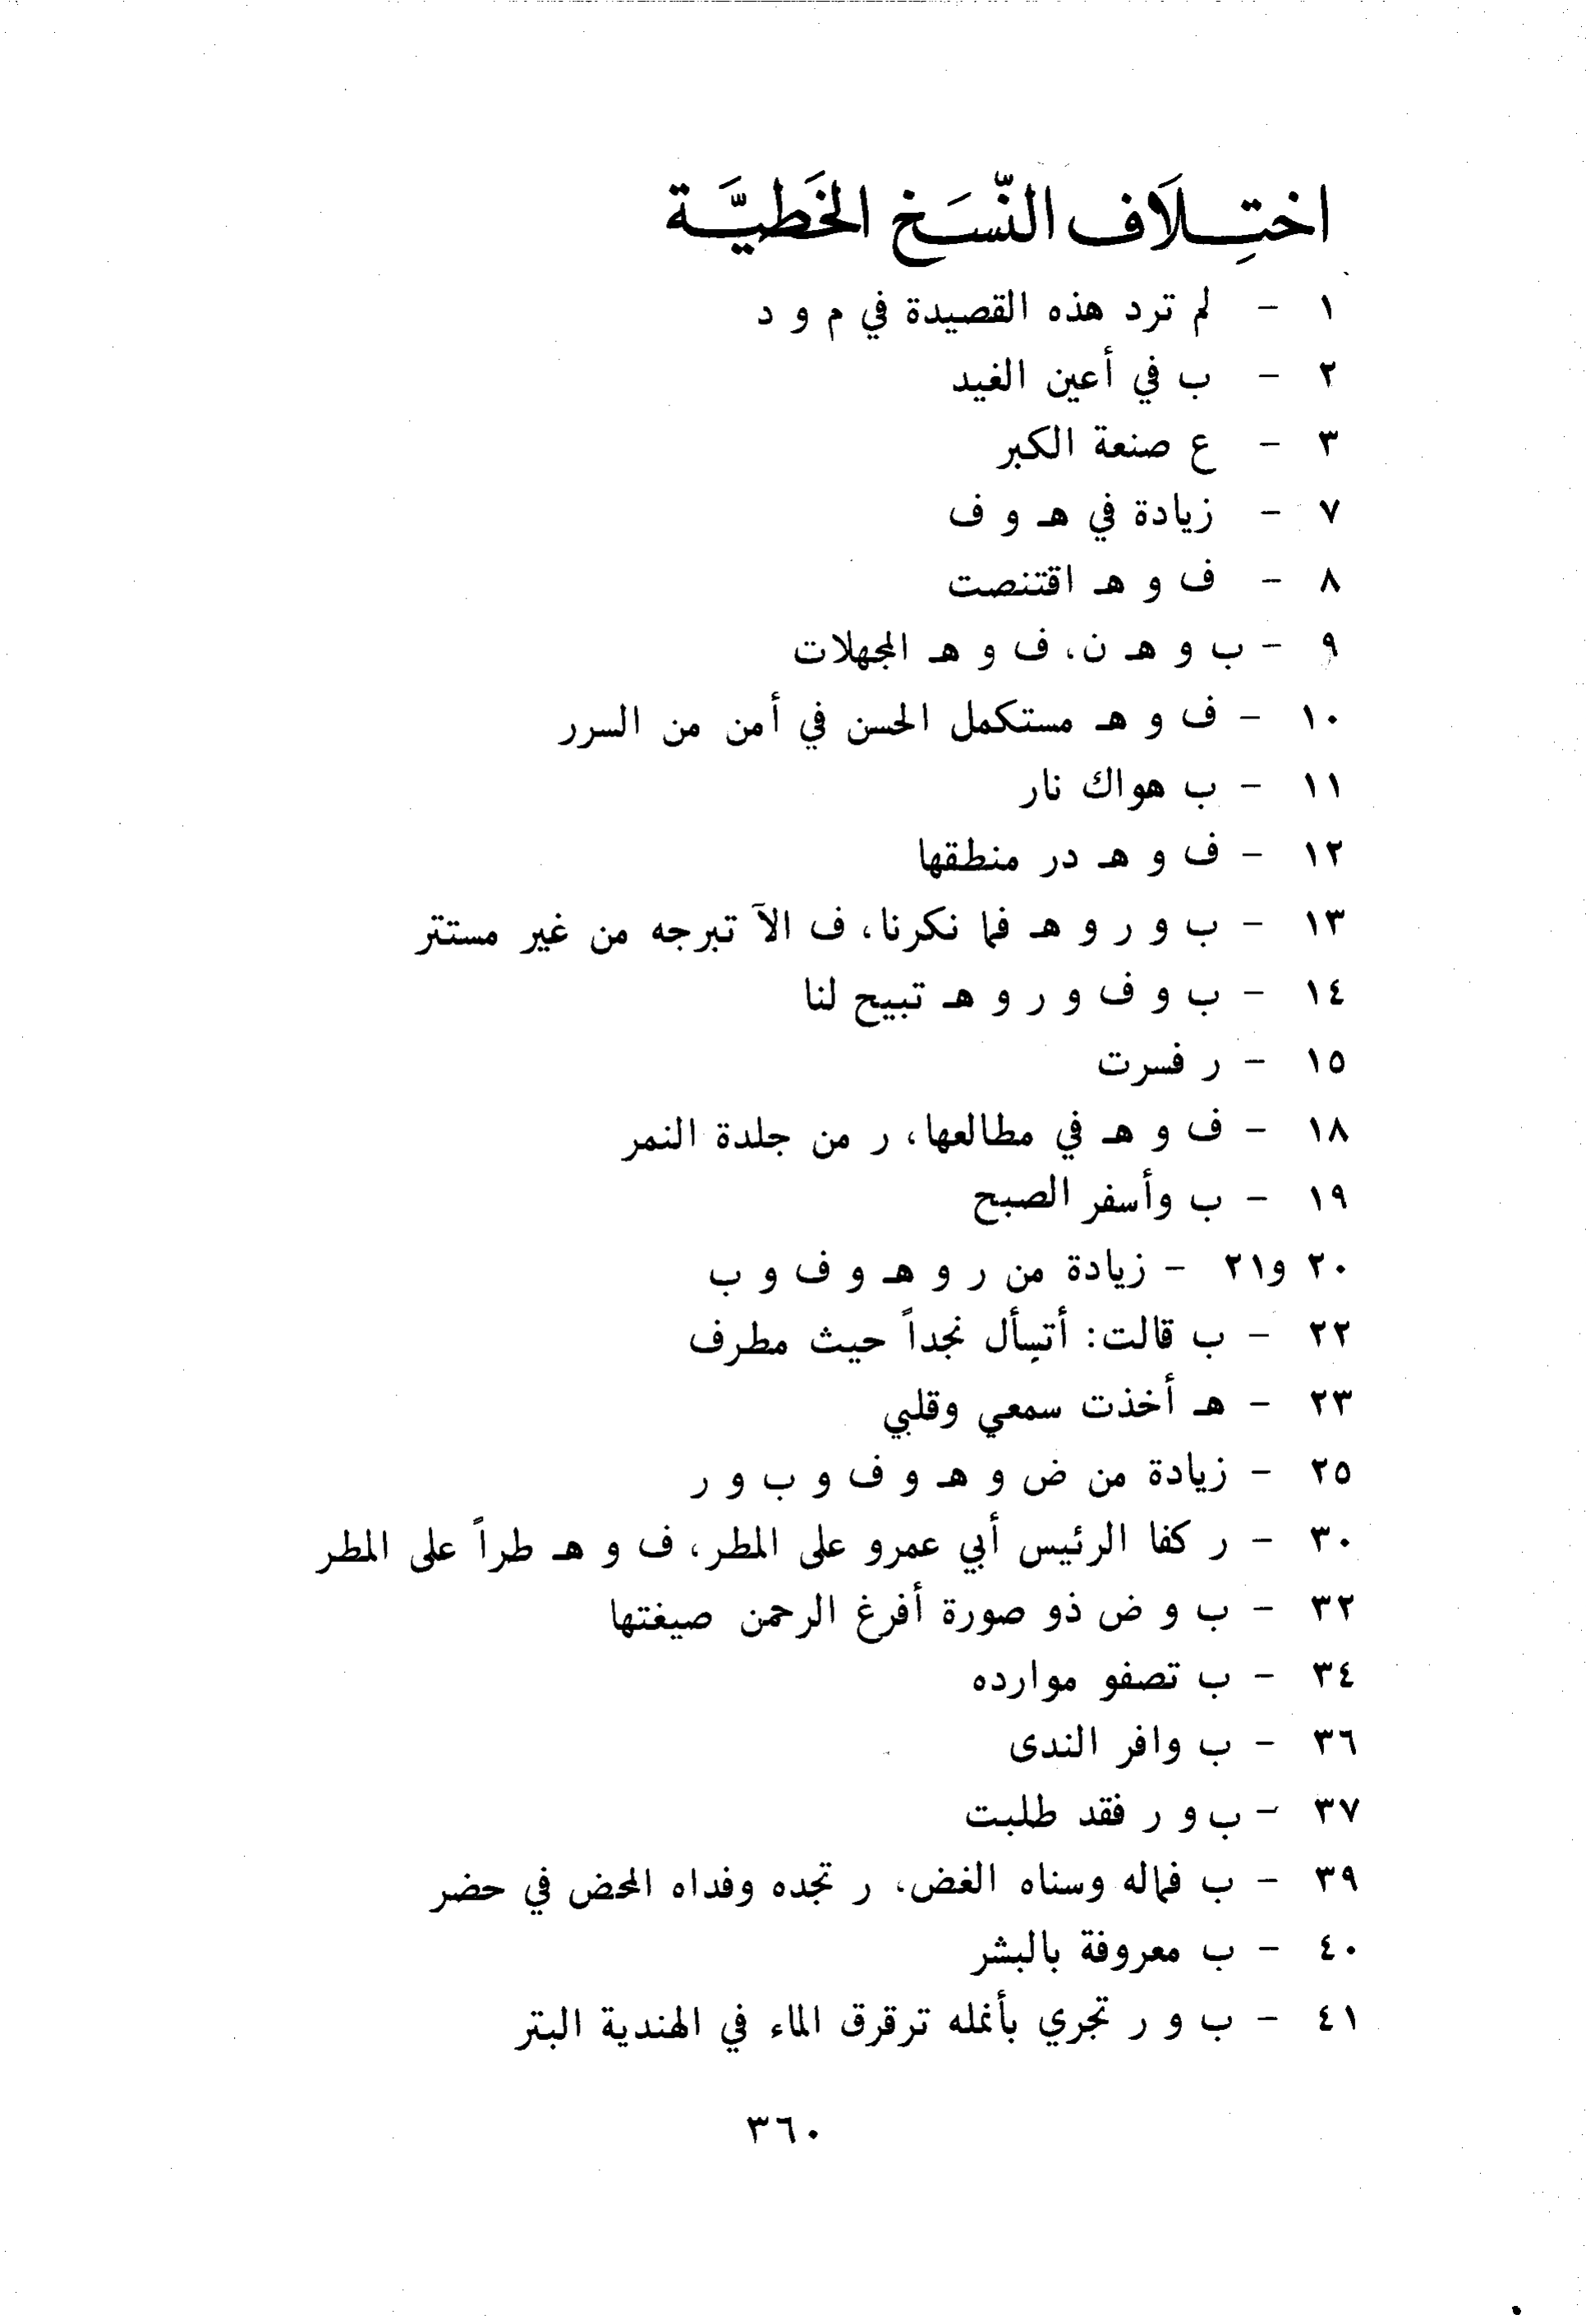 اختِلَاف النّسَخ الخَطيَّة
١ - لم ترد هذه القصيدة في م و د
٢ - ب في أعين الغيد
٣ - ع صنعة الكبر
٧ - زيادة في هـ و ف
٨ - ف و هـ اقتنصت
٩ - ب و هـ ن، ف و هـ المجهلات
١٠ - ف و هـ مستكمل الحسن في أمن من السرر
١١ - ب هواك نار
١٢ - ف و هـ در منطقها
١٣ - ب و ر و هـ فما نكرنا، ف الآ تبرجه من غير مستتر
١٤ - ب و ف و ر و هـ تبيح لنا
١٥ - ر فسرت
١٨ - ف و هـ في مطالعها، ر من جلدة النمر
١٩ - ب وأسفر الصبح
٢٠ و٢١ - زيادة من ر و هـ و ف و ب
٢٢ - ب قالت: أتسأل نجداً حيث مطرف
٢٣ - هـ أخذت سمعي وقلبي
٢٥ - زيادة من ض و هـ و ف و ب و ر
٣٠ - ر كفا الرئيس أبي عمرو على المطر، ف و هـ طراً على المطر
٣٢ - ب و ض ذو صورة أفرغ الرحمن صيغتها
٣٤ - ب تصفو موارده
٣٦ - ب وافر الندى
٣٧ - ب و ر فقد طلبت
٣٩ - ب فماله وسناه الغض، ر تجده وفداه المحض في حضر
٤٠ - ب معروفة بالبشر
٤١ - ب و ر تجري بأنمله ترقرق الماء في الهندية البتر
٣٦٠